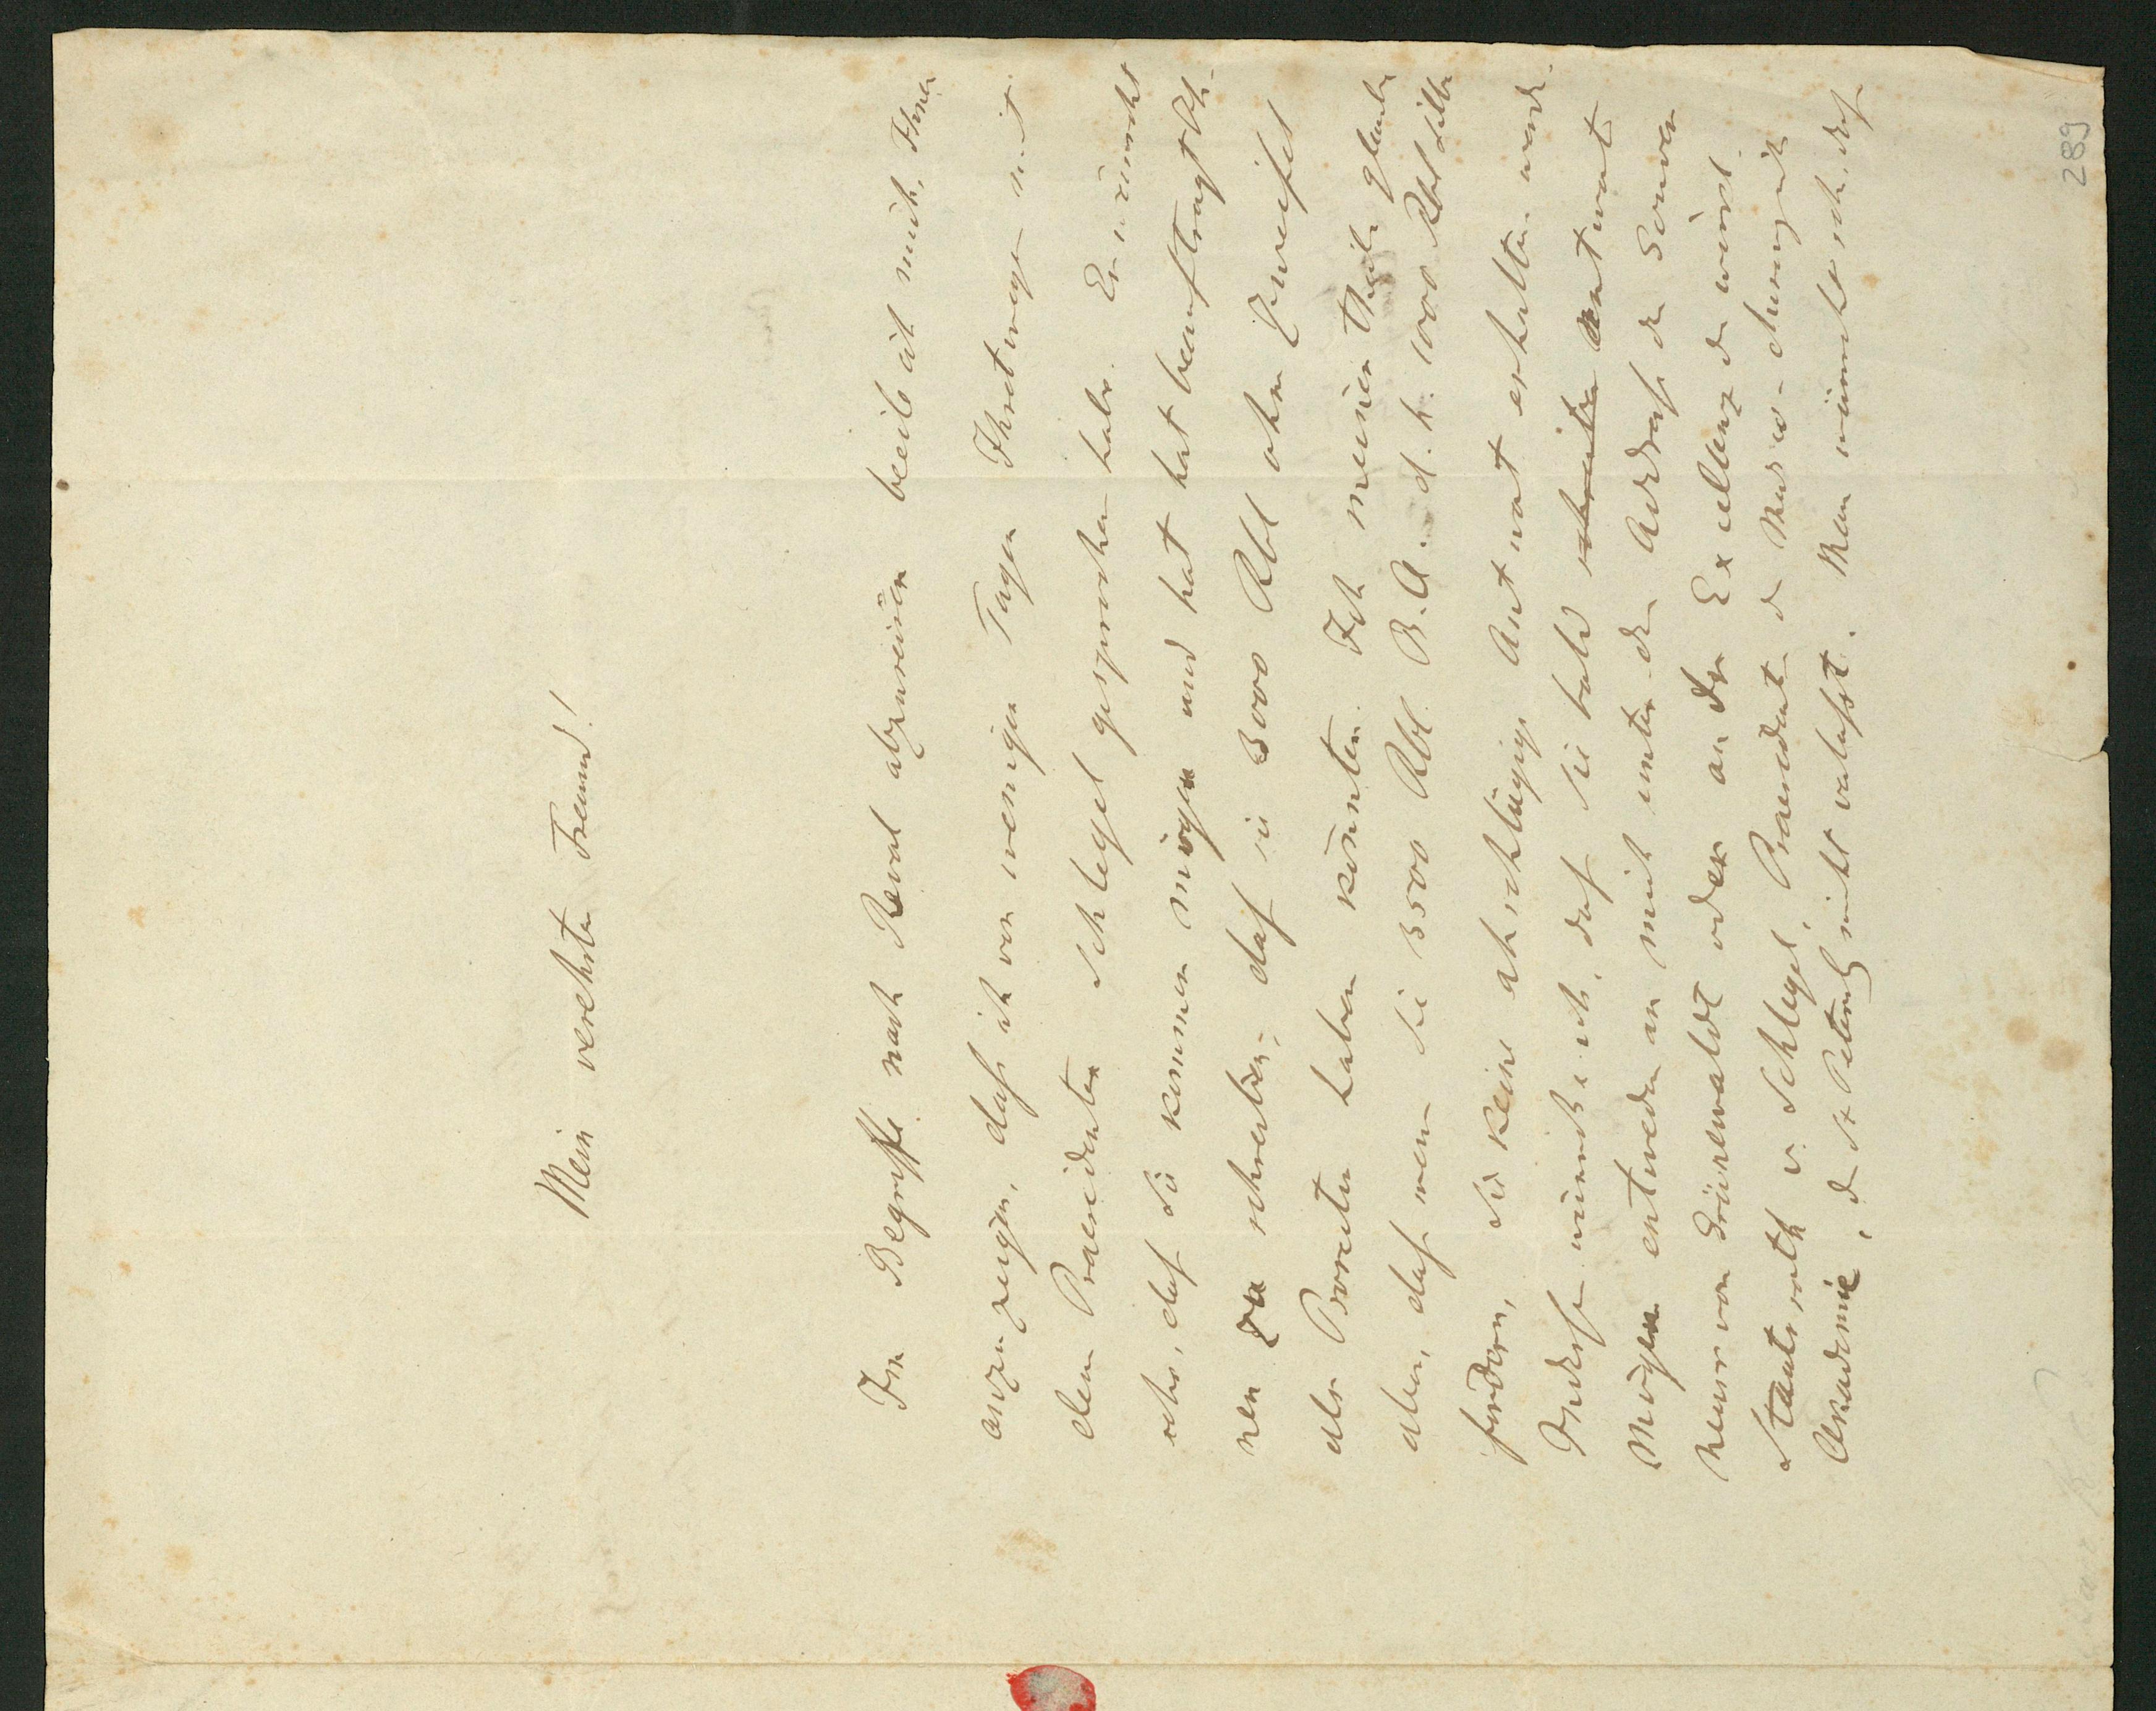 289
Mein verehrter Freund!
Im Begriffe nach Reval abzureisen beeile ich mich, Ihnen
anzuzeigen, daß ich vor wenigen Tagen Ihretwegen mit
dem Praesidenten Schlegel gesprochen habe. Er wünscht
sehr, daß Sie kommen mögen und hat hat beauftragt Ih-
nen zu schreiben, daß Sie 3000 Rbl ohne Zweifel
als Prosector haben könnten. Ich meiner Theils glaube
aber, daß wenn Sie 3500 Rbl. B. A. d. h. 1000 Rbl Silber
fordern, Sie keine abschlägige Antwort erhalten werden.
Indessen wünscht ich, daß Sie bald antwort
mögen entweder an mich unter der Addresse der Gouver
neurs von Grünewaldt oder an den Excellenz den wirkl.
Staatsrath v. Schlegel, Praesidenten der Medico-chirurgisch
Akademie, der St Petersb nicht verlässt. Man wünscht sehr, daß